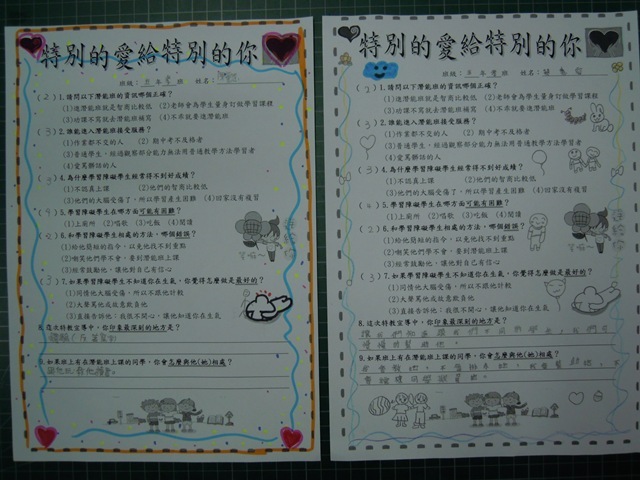 特別的愛給特別的你
班級：五年 班 姓名：
(2)1.請問以下潛能班的資訊哪個正確？
(1)進潛能班就是智商比較低 (2)老師會為學生量身訂做學習課程
(3)功課不寫就去潛能班補寫 (4)不乖就要進潛能班
(3)2.誰能進入潛能班接受服務？
(1)作業都不交的人 (2)期中考不及格者
(3)普通學生，經過觀察部分能力無法用普通教學方法學習者
(4)愛罵髒話的人
(3)4.為什麼學習障礙學生經常得不到好成績？
(1)不認真上課 (2)他們的智商比較低
(3)他們的大腦受傷了，所以學習產生困難 (4)回家沒有複習
(4)5.學習障礙學生在哪方面可能有困難？
(1)上廁所 (2)唱歌 (3)吃飯 (4)閱讀
(2)6.和學習障礙學生相處的方法，哪個錯誤？
(1)給他簡短的指令，以免他找不到重點
(2)嘲笑他們學不會，要到潛能班上課
(3)經常鼓勵他，讓他對自己有信心
(3)7.如果學習障礙學生不知道你在生氣，你覺得怎麼做是最好的？
(1)同情他大腦受傷，所以不跟他計較
(2)大聲罵他或故意欺負他
(3)直接告訴他：我很不開心，讓他知道你在生氣
8.這次特教宣導中，你印象最深刻的地方是？
9.如果班上有在潛能班上課的同學，你會怎麼與他(她)相處？
特別的愛給特別的你
班級：五年 班 姓名：
(2)1.請問以下潛能班的資訊哪個正確？
(1)進潛能班就是智商比較低 (2)老師會為學生量身訂做學習課程
(3)功課不寫就去潛能班補寫 (4)不乖就要進潛能班
(3)2.誰能進入潛能班接受服務？
(1)作業都不交的人 (2)期中考不及格者
(3)普通學生，經過觀察部分能力無法用普通教學方法學習者
(4)愛罵髒話的人
(3)4.為什麼學習障礙學生經常得不到好成績？
(1)不認真上課 (2)他們的智商比較低
(3)他們的大腦受傷了，所以學習產生困難 (4)回家沒有複習
(4)5.學習障礙學生在哪方面可能有困難？
(1)上廁所 (2)唱歌 (3)吃飯 (4)閱讀
(2)6.和學習障礙學生相處的方法，哪個錯誤？
(1)給他簡短的指令，以免他找不到重點
(2)嘲笑他們學不會，要到潛能班上課
(3)經常鼓勵他，讓他對自己有信心
(3)7.如果學習障礙學生不知道你在生氣，你覺得怎麼做是最好的？
(1)同情他大腦受傷，所以不跟他計較
(2)大聲罵他或故意欺負他
(3)直接告訴他：我很不開心，讓他知道你在生氣
8.這次特教宣導中，你印象最深刻的地方是？
9.如果班上有在潛能班上課的同學，你會怎麼與他(她)相處？